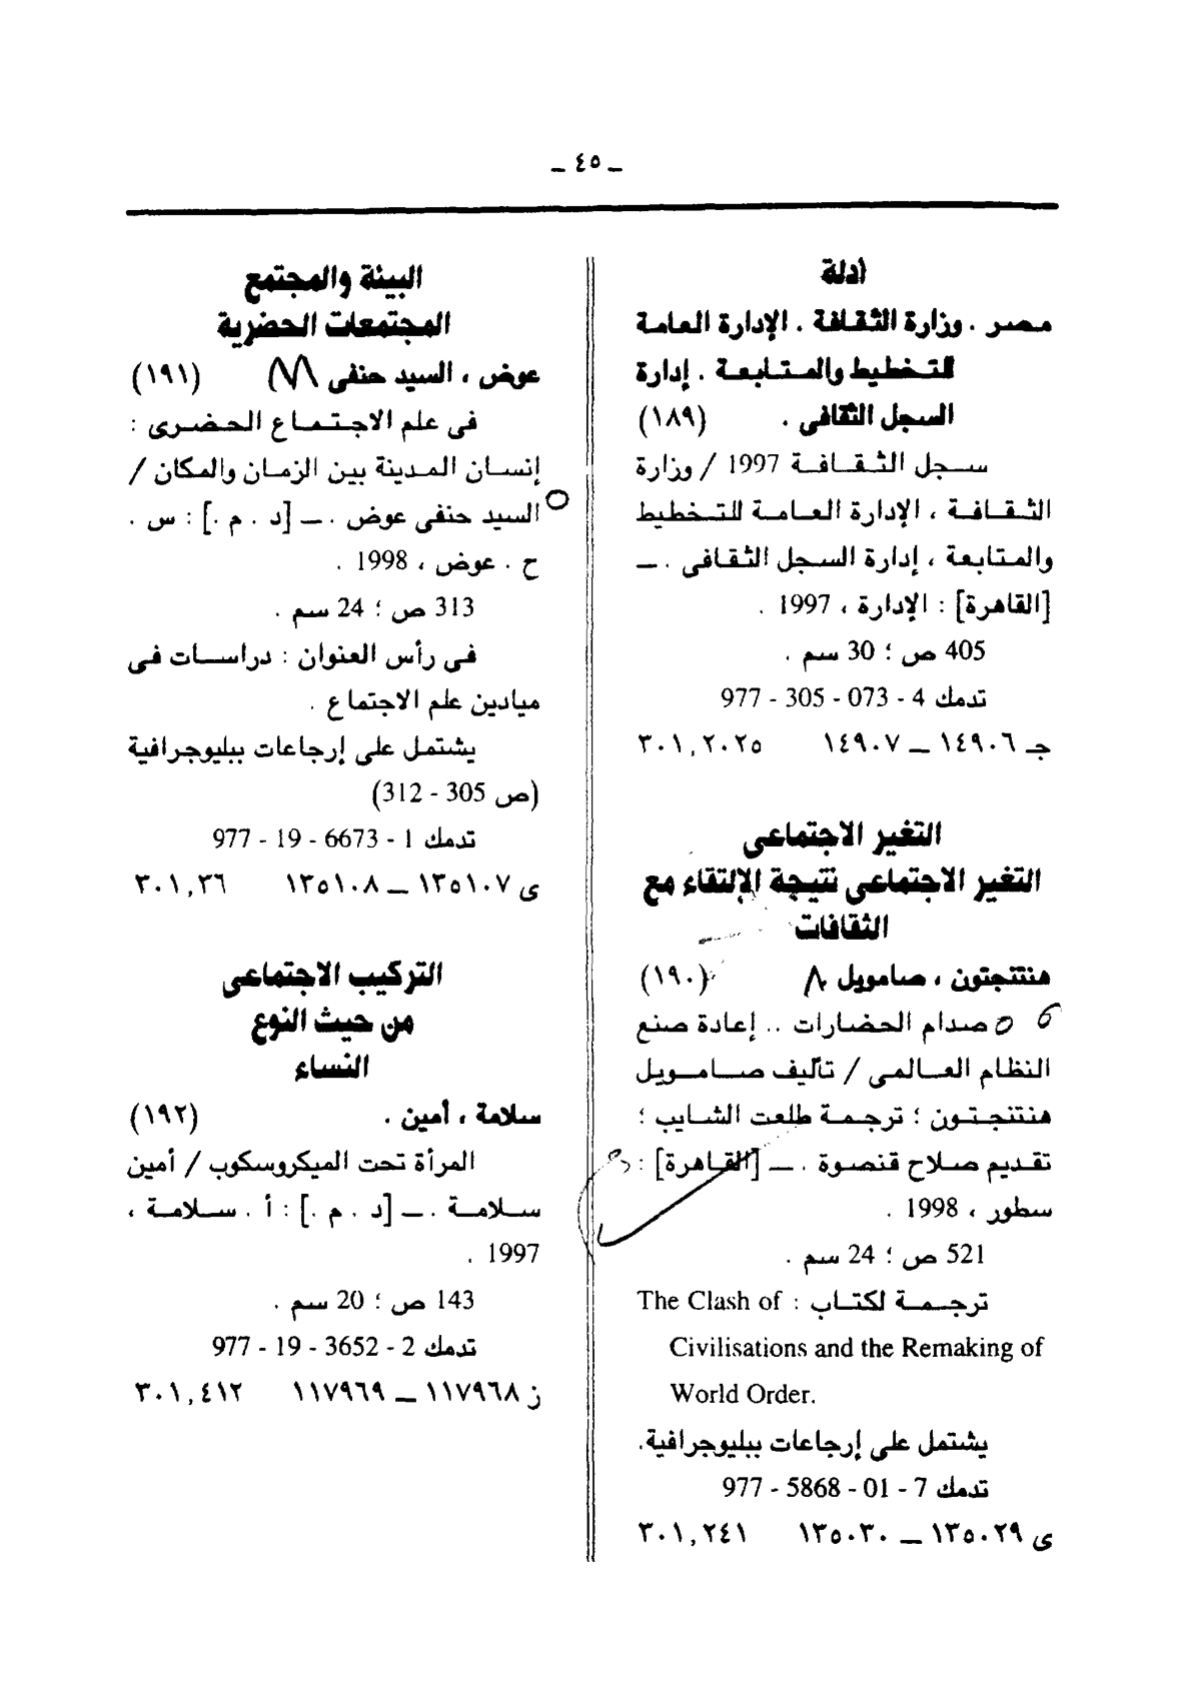 ـ ٤٥ ـ
أدلة
مصر . وزارة الثقافة . الإدارة العامة
للتخطيط والمتابعة . إدارة
السجل الثقافى . (١٨٩)
سجل الثقافة 1997 / وزارة
الثقافة ، الإدارة العامة للتخطيط
والمتابعة ، إدارة السجل الثقافى . ــ
[القاهرة] : الإدارة ، 1997 .
405 ص ؛ 30 سم .
تدمك 4 - 073 - 305 - 977
جـ ١٤٩٠٦ ــ ١٤٩٠٧ ٣٠١,٢٠٢٥
التغير الاجتماعى
التغير الاجتماعى نتيجة الإلتقاء مع
الثقافات
هنتنجتون ، صامويل (١٩٠)
صدام الحضارات .. إعادة صنع
النظام العالمى / تأليف صامويل
هنتنجتون ؛ ترجمة طلعت الشايب ؛
تقديم صلاح قنصوة . ــ [القاهرة] :
سطور ، 1998 .
521 ص ؛ 24 سم .
ترجمة لكتاب : The Clash of
Civilisations and the Remaking of
World Order.
يشتمل على إرجاعات ببليوجرافية.
تدمك 7 - 01 - 5868 - 977
ى ١٣٥٠٢٩ ــ ١٣٥٠٣٠ ٣٠١,٢٤١
البيئة والمجتمع
المجتمعات الحضرية
عوض ، السيد حنفى (١٩١)
فى علم الاجتماع الحضرى :
إنسان المدينة بين الزمان والمكان /
السيد حنفى عوض . ــ [د . م .] : س .
ح . عوض ، 1998 .
313 ص ؛ 24 سم .
فى رأس العنوان : دراسات فى
ميادين علم الاجتماع .
يشتمل على إرجاعات ببليوجرافية
(ص 305 - 312)
تدمك 1 - 6673 - 19 - 977
ى ١٣٥١٠٧ ــ ١٣٥١٠٨ ٣٠١,٣٦
التركيب الاجتماعى
من حيث النوع
النساء
سلامة ، أمين . (١٩٢)
المرأة تحت الميكروسكوب / أمين
سلامة . ــ [د . م .] : أ . سلامة ،
1997 .
143 ص ؛ 20 سم .
تدمك 2 - 3652 - 19 - 977
ز ١١٧٩٦٨ ــ ١١٧٩٦٩ ٣٠١,٤١٢